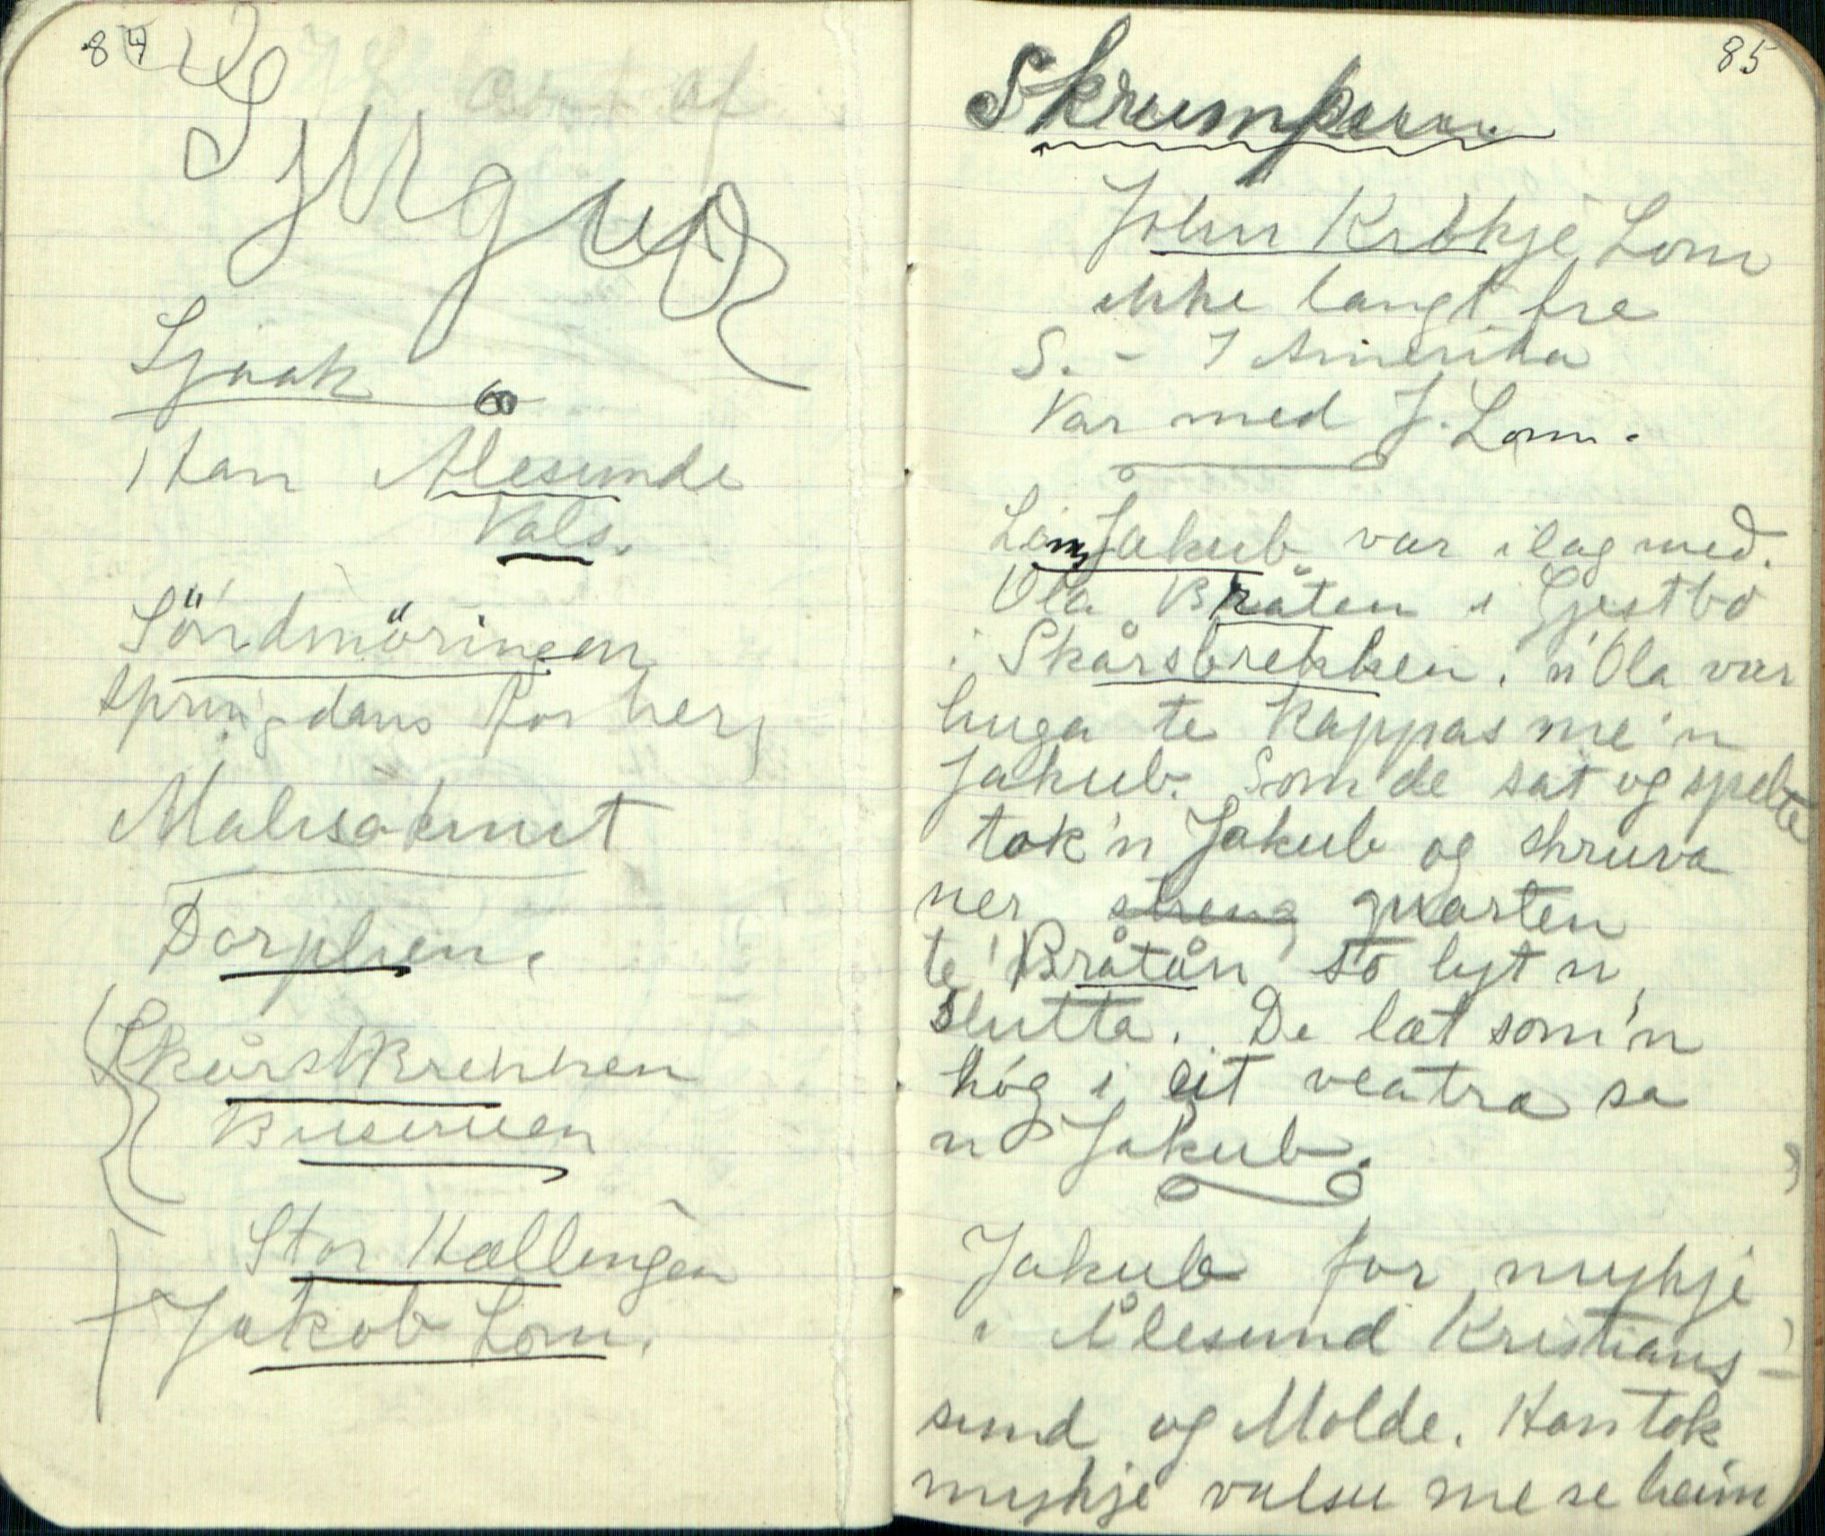 84
Sjugur
Sjaak
Han Alesunde
Vals.
Söndmöringen
springdans Kor her
Malisakmut
Dorphen.
Skårsbrekken
Buseruen
Stor Hallingen
Jakob Lom.
85
Skrumpuren
John Krökje Lom
ikke langt fre
S. - I Amerika
Var med J. Lom.
Lom Jakub var ilag med.
Ola Bråten i Gjestbo
i Skårsbrekken. n'Ola var
huga te kappas me'n
Jakub. Som de sat og spelte
tok'n Jakub og skruva
ner streng quarten
te' Bråtån so lyt n
slutta. De læt som'n
hóg i eit veatra sa
n Jakub.
Jakub for mykje
i Ålesund Kristians-
sund og Molde. Han tok
mykje valsu me se heim